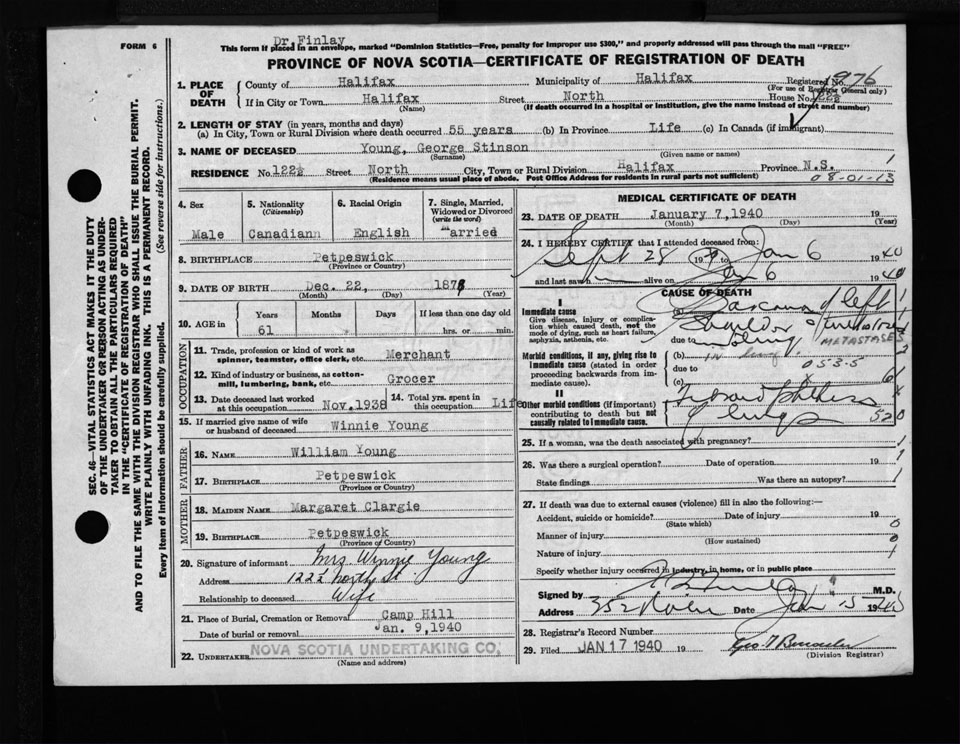 Dr. Finlay
FORM 6
This form if placed in an envelope, marked "Dominion Statistics—Free, penalty for improper use $300," and properly addressed will pass through the mail "FREE"
PROVINCE OF NOVA SCOTIA—CERTIFICATE OF REGISTRATION OF DEATH
SEC. 46—VITAL STATISTICS ACT MAKES IT THE DUTY
OF THE UNDERTAKER OR PERSON ACTING AS UNDER-
TAKER TO OBTAIN ALL THE PARTICULARS REQUIRED
IN THE "CERTIFICATE OF REGISTRATION OF DEATH"
AND TO FILE THE SAME WITH THE DIVISION REGISTRAR WHO SHALL ISSUE THE BURIAL PERMIT.
WRITE PLAINLY WITH UNFADING INK. THIS IS A PERMANENT RECORD.
Every item of Information should be carefully supplied. (See reverse side for instructions.)
1. PLACE OF DEATH County of Halifax Municipality of Halifax Registered No. 976
(For use of Registrar General only)
If in City or Town Halifax Street North House No. 122½
(Name) (If death occurred in a hospital or institution, give the name instead of street and number)
2. LENGTH OF STAY (in years, months and days)
(a) In City, Town or Rural Division where death occurred 55 years (b) In Province Life (c) In Canada (if immigrant)
3. NAME OF DECEASED Young, George Stinson
(Surname) (Given name or names)
RESIDENCE No. 122½ Street North City, Town or Rural Division Halifax Province N.S. 1
(Residence means usual place of abode. Post Office Address for residents in rural parts not sufficient) 08-01-13
4. Sex Male
5. Nationality (Citizenship) Canadiann
6. Racial Origin English
7. Single, Married, Widowed or Divorced (write the word) Married
8. BIRTHPLACE Petpeswick
(Province or Country)
9. DATE OF BIRTH Dec. 22, 1878
(Month) (Day) (Year)
10. AGE in Years 61 Months Days If less than one day old hrs. or min.
OCCUPATION
11. Trade, profession or kind of work as spinner, teamster, office clerk, etc. Merchant
12. Kind of industry or business, as cotton-mill, lumbering, bank, etc. Grocer
13. Date deceased last worked at this occupation Nov. 1938 14. Total yrs. spent in this occupation Life
15. If married give name of wife or husband of deceased Winnie Young
FATHER
16. NAME William Young
17. BIRTHPLACE Petpeswick
(Province or Country)
MOTHER
18. MAIDEN NAME Margaret Clargie
19. BIRTHPLACE Petpeswick
(Province or Country)
20. Signature of informant Mrs Winnie Young
Address 122½ North St
Relationship to deceased Wife
21. Place of Burial, Cremation or Removal Camp Hill
Date of burial or removal Jan. 9, 1940
22. UNDERTAKER NOVA SCOTIA UNDERTAKING CO.
(Name and address)
MEDICAL CERTIFICATE OF DEATH
23. DATE OF DEATH January 7, 1940 19
(Month) (Day) (Year)
24. I HEREBY CERTIFY that I attended deceased from:
Sept 28 19 to Jan 6 1940
and last saw alive on Jan 6 1940
CAUSE OF DEATH
I
Immediate cause
Give disease, injury or complication which caused death, not the mode of dying, such as heart failure, asphyxia, asthenia, etc.
of left
Shoulder
due to
METASTASES
Morbid conditions, if any, giving rise to immediate cause (stated in order proceeding backwards from immediate cause).
(b) in lung
due to 053.5
(c)
II
Other morbid conditions (if important) contributing to death but not causally related to immediate cause.
520
25. If a woman, was the death associated with pregnancy?
26. Was there a surgical operation? Date of operation 19
State findings Was there an autopsy?
27. If death was due to external causes (violence) fill in also the following:—
Accident, suicide or homicide? Date of injury 19
(State which)
Manner of injury
(How sustained)
Nature of injury
Specify whether injury occurred in industry, in home, or in public place
Signed by M.D.
Address 352 Date Jan 15 1940
28. Registrar's Record Number
29. Filed JAN 17 1940 19
(Division Registrar)